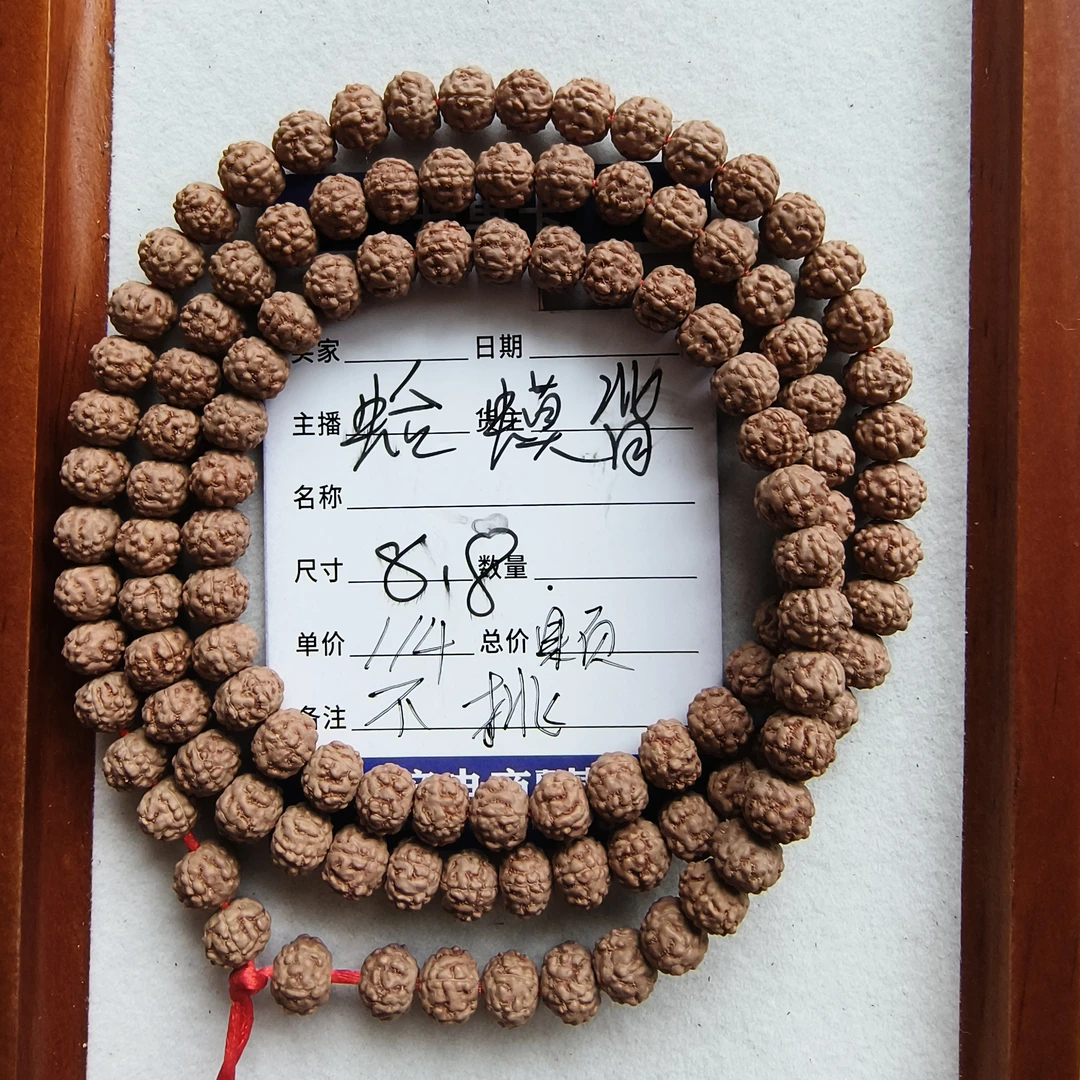 买家 日期
主播 蛤 货主 蟆背
名称
尺寸 8.8 数量
单价 114 总价 颗
备注 不挑